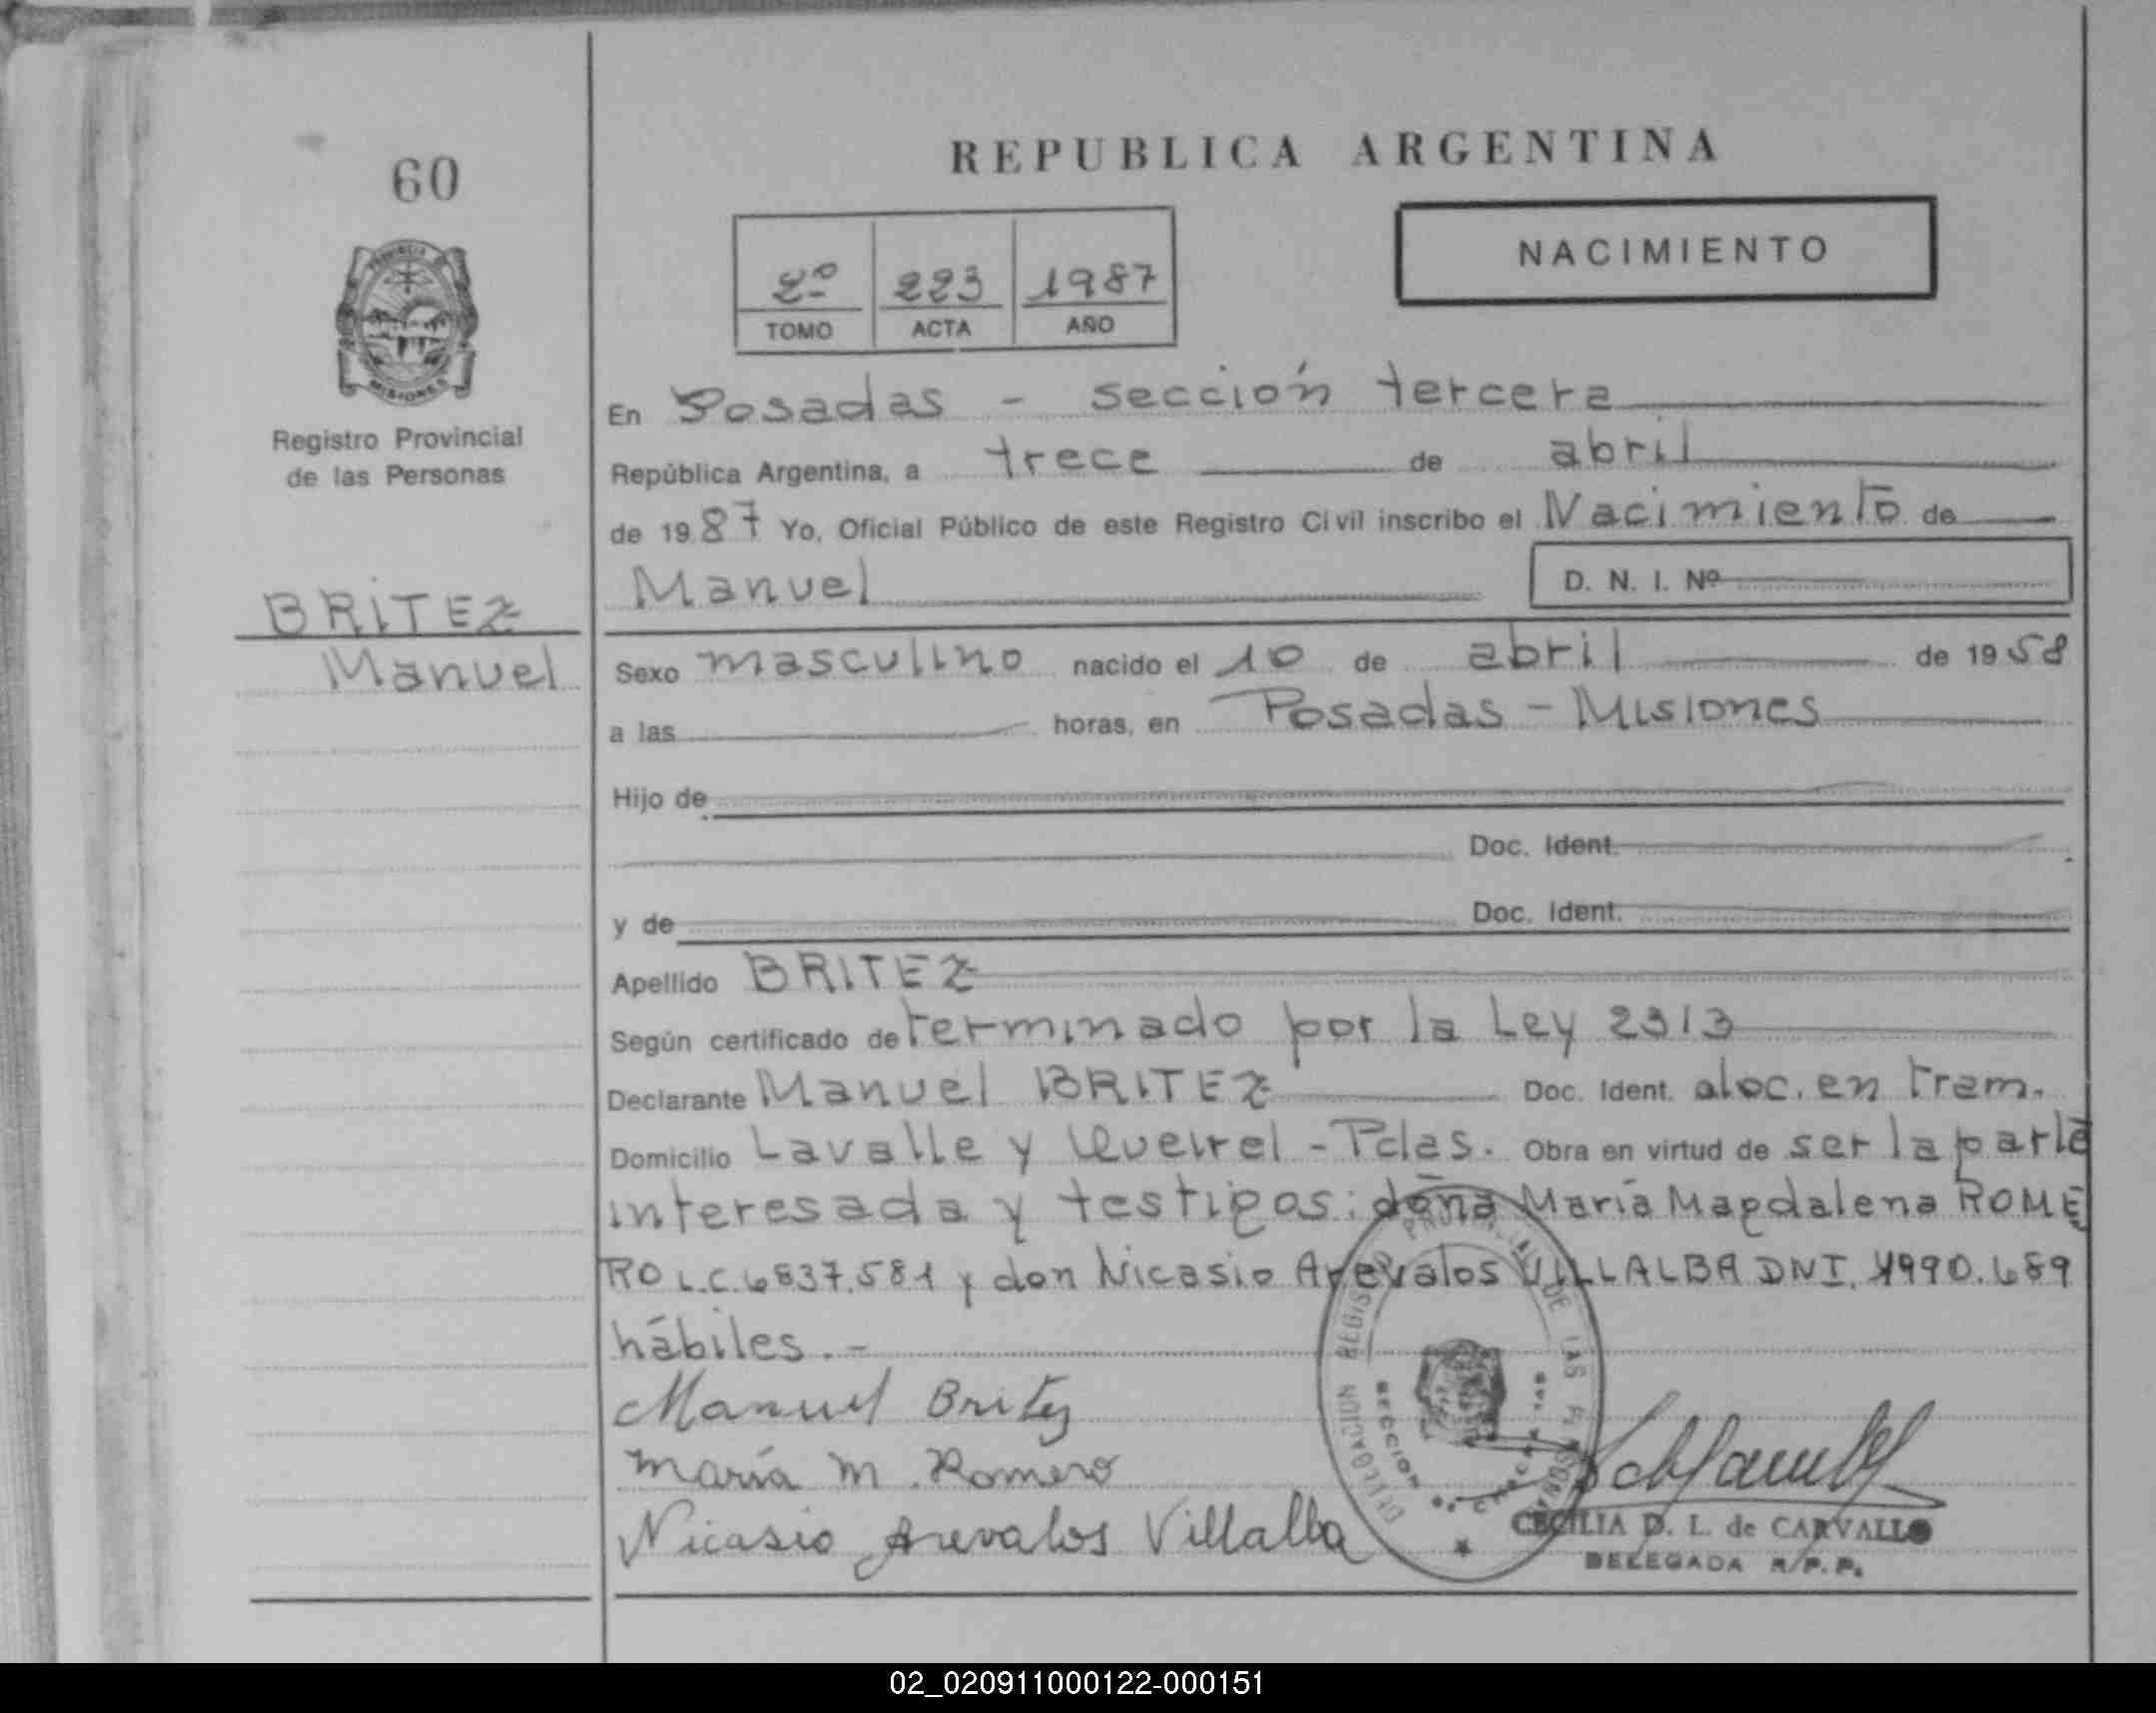 60
REPUBLICA ARGENTINA
NACIMIENTO
2º 223 1987
TOMO ACTA AÑO
PROVINCIA DE
MISIONES
Registro Provincial
de las Personas
BRITEZ
Manuel
En Posadas - sección tercera
República Argentina, a trece de abril
de 1987 Yo, Oficial Público de este Registro Civil inscribo el Nacimiento de
Manuel D. N. I. Nº
Sexo masculino nacido el 10 de abril de 1958
a las horas, en Posadas - Misiones
Hijo de
Doc. Ident.
y de Doc. Ident.
Apellido BRITEZ
Según certificado determinado por la Ley 2313
Declarante Manuel BRITEZ Doc. Ident. doc. en tram.
Domicilio Lavalle y Queirel - Pdas. Obra en virtud de ser la parte
interesada y testigos: doña María Magdalena ROME
RO L.C. 6837.581 y don Nicasio Arevalos VILLALBA DNI. 4990.689
hábiles.-
Manuel Britez
María M. Romero
Nicasio Arevalos Villalba
DELEGACION REGISTRO PROVINCIAL DE LAS PERSONAS
SECCION
CECILIA D. L. de CARVALLO
DELEGADA R/P.P.
02_020911000122-000151